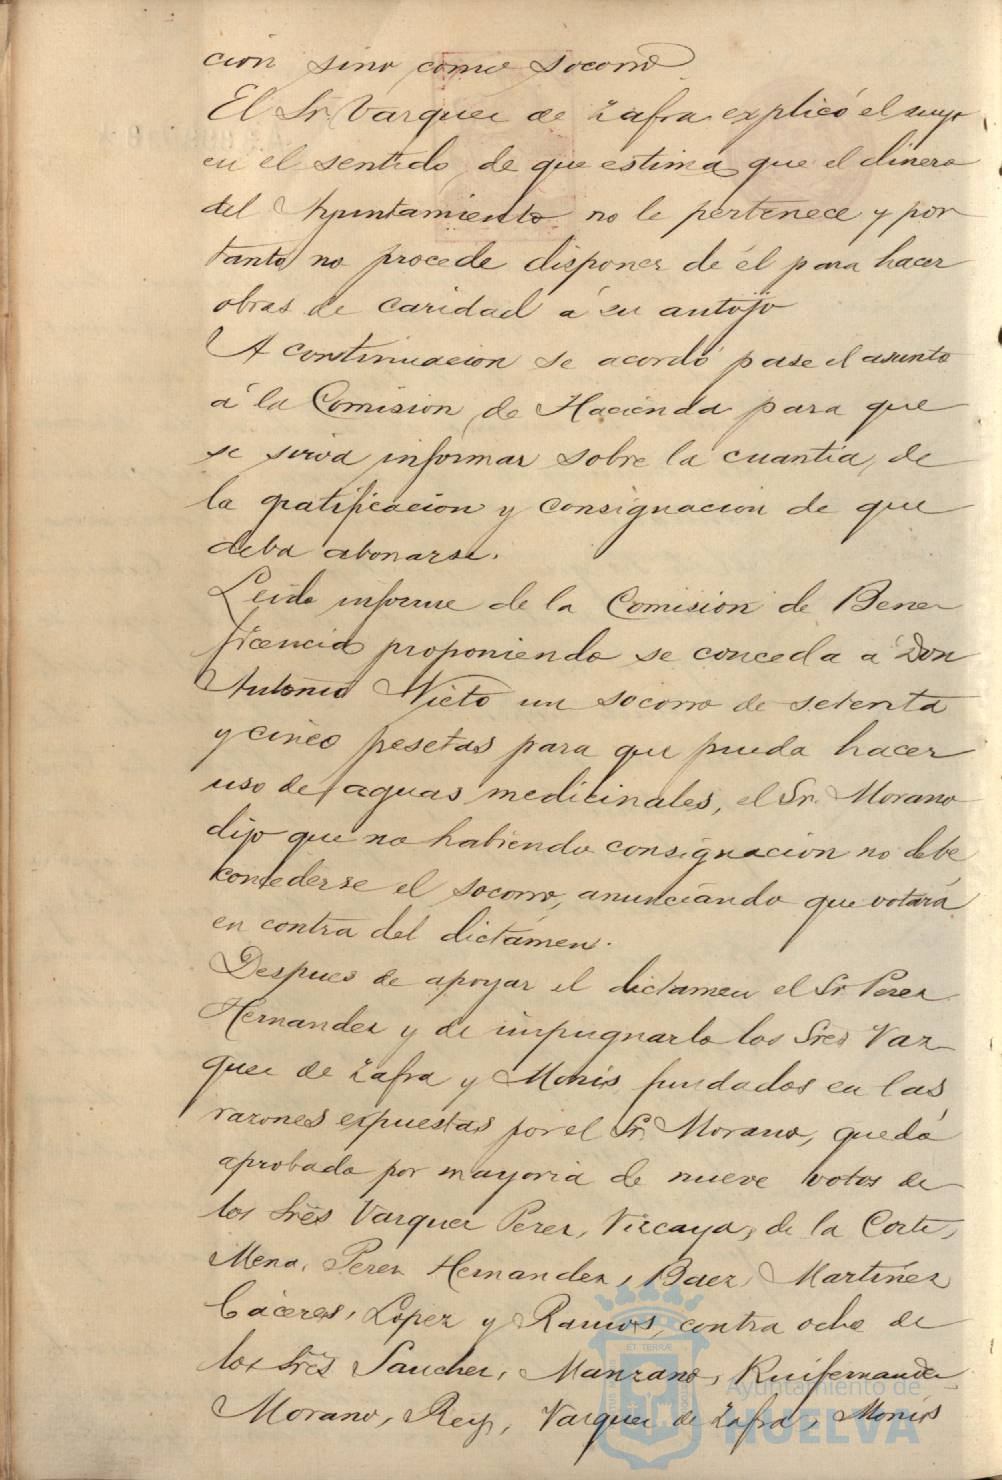 cion sino como socorro
El Sr. Vazquez de Zafra explicó el suyo
en el sentido de que estima que el dinero
del Ayuntamiento no le pertenece y por
tanto no procede disponer de él para hacer
obras de caridad á su antojo
A continuacion se acordó pase el asunto
á la Comision de Hacienda para que
se sirva informar sobre la cuantía de
la gratificacion y consignacion de que
deba abonarse.
Leido informe de la Comision de Bene
ficencia proponiendo se conceda á Don
Antonio Nieto un socorro de setenta
y cinco pesetas para que pueda hacer
uso de aguas medicinales, el Sr. Morano
dijo que no habiendo consignacion no debe
concederse el socorro, anunciando que votará
en contra del dictámen.
Despues de apoyar el dictamen el Sr. Perez
Hernandez y de impugnarlo los Sres Vaz
quez de Zafra y Monis, fundados en las
razones expuestas por el Sr. Morano, quedó
aprobado por mayoria de nueve votos de
los Sres Vazquez Perez, Vizcaya, de la Corte,
Mena, Perez Hernandez, Baez, Martinez
Cáceres, Lopez y Ramos, contra ocho de
los Sres Sanchez, Manzano, Ruifernandez
Morano, Rey, Vazquez de Zafra, Monis
ET TERRÆ
Ayuntamiento de
HUELVA